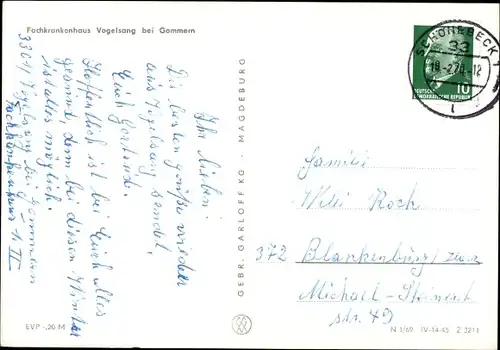 Fachkrankenhaus Vogelsang bei Gommern
Ihr Lieben!
Die besten Grüße wieder
aus Vogelsang sendet
Euch Gertrude.
Hoffentlich ist bei Euch alles
gesund, denn bei diesen Winter
ist alles möglich.
3301 Vogelsang bei Gommern
Fachkrankenhaus
GEBR. GARLOFF KG · MAGDEBURG
SCHÖNEBECK 1
33
-2.70-12
DEUTSCHE
DEMOKRATISCHE REPUBLIK
10
Familie
Willi Koch
372 Blankenburg/Harz
Michael-Steinerstr. 49
EVP -,20 M
N 1/69 IV-14-45 Z 3211